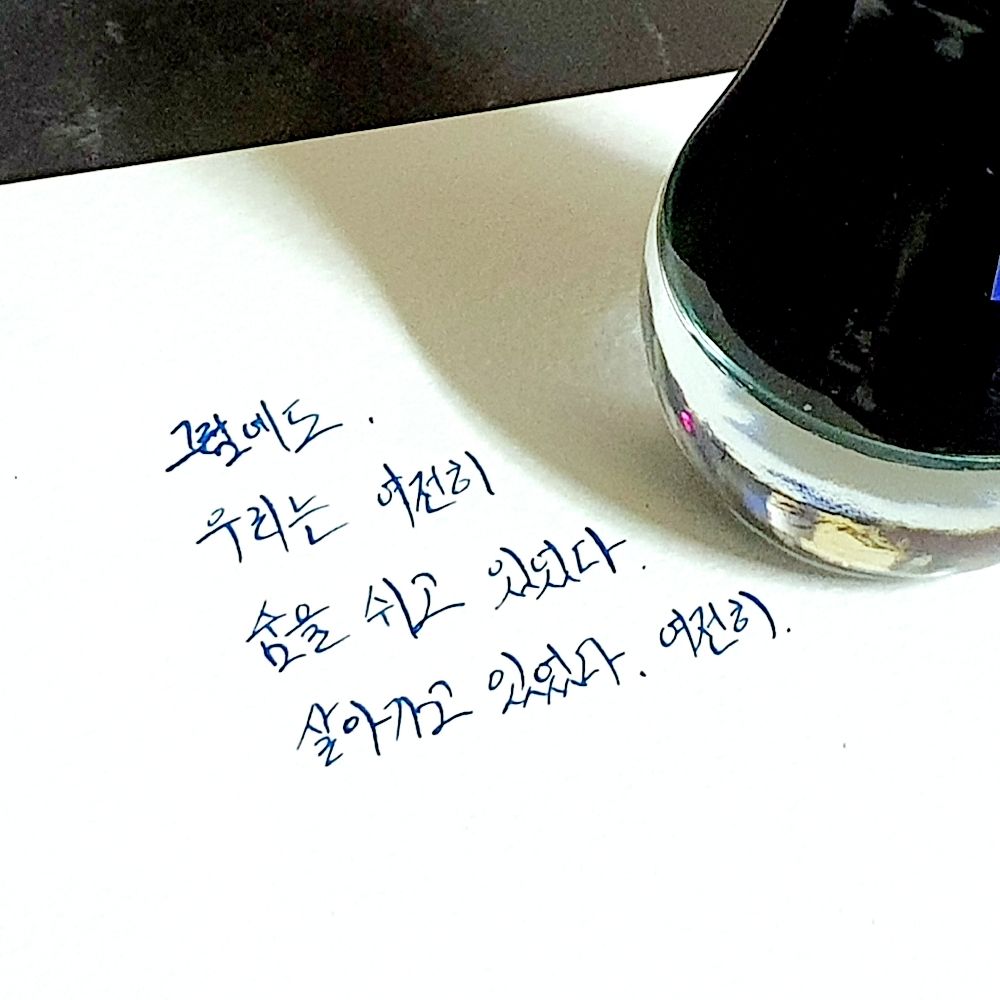 그럼에도.
우리는 여전히
숨을 쉬고 있었다.
살아가고 있었다. 여전히.